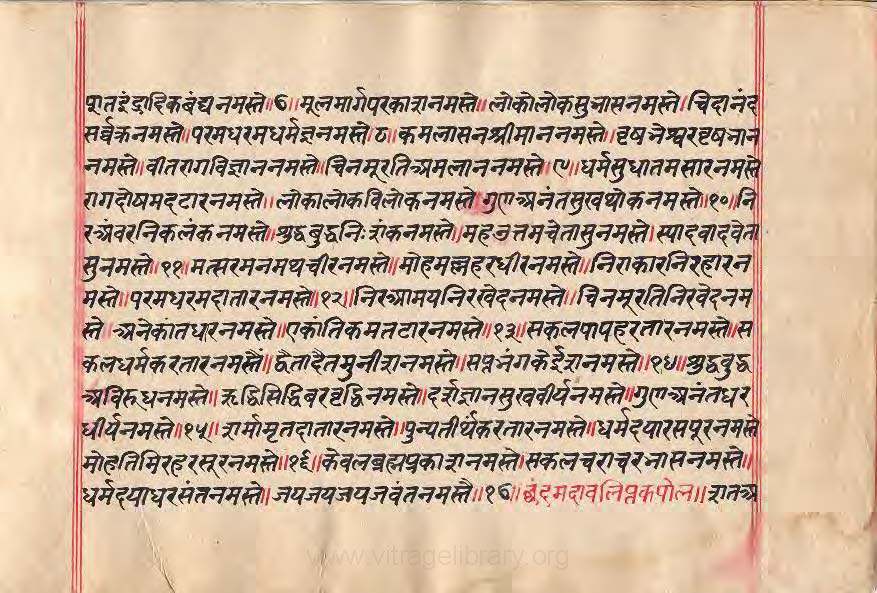 षातइंद्रादिकबंद्यनमस्ते॥७॥मूलमार्गपरकाशनमस्ते॥लोकोलोकसुभासनमस्ते॥चिदानंद
सर्व्वज्ञनमस्ते॥परमधरमधर्मज्ञनमस्ते॥८॥कमलासनश्रीमाननमस्ते॥वृषभेश्वरवृषभान
नमस्ते॥वीतरागविज्ञाननमस्ते॥चिनमूरतिअमलाननमस्ते॥९॥धर्मसुधातमसारनमस्ते
रागदोषमदटारनमस्ते॥लोकालोकविलोकनमस्ते॥गुणअनंतसुखथोकनमस्ते॥१०॥नि
रअंवरनिकलंकनमस्ते॥शुद्धबुद्धनिःशंकनमस्ते॥महउत्तमचेतासुनमस्ते॥स्यादवादवेता
सुनमस्ते॥११॥मत्सरमनमथचीरनमस्ते॥मोहमल्लहरधीरनमस्ते॥निराकारनिरहारन
मस्ते॥परमधरमदातारनमस्ते॥१२॥निरआमयनिरखेदनमस्ते॥चिनमूरतिनिरवेदनम
स्ते॥अनेकांतधारनमस्ते॥एकांतिकमतटारनमस्ते॥१३॥सकलपापहरतारनमस्ते॥स
कलधर्मकरतारनमस्तै॥द्वैताद्वैतमुनीशनमस्ते॥सप्तभंगकेईशनमस्ते॥१४॥शुद्धबुद्ध
अविरुधनमस्ते॥ऋद्धिसिद्धिवरवृद्धिनमस्ते॥दर्शज्ञानसुखवीर्यनमस्ते॥गुणअनंतधर
धीर्यनमस्ते॥१५॥शर्मामृतदातारनमस्ते॥पुन्यतीर्थकरतारनमस्ते॥धर्मदयारसपूरनमस्ते
मोहतिमिरहरसूरनमस्ते॥१६॥केवलब्रह्मप्रकाशनमस्ते॥सकलचराचरभासनमस्ते॥
धर्मदयाधरसंतनमस्ते॥जयजयजयजवंतनमस्तै॥१७॥छंदमदावलिप्तकपोल॥शतअ
www.vitragelibrary.org